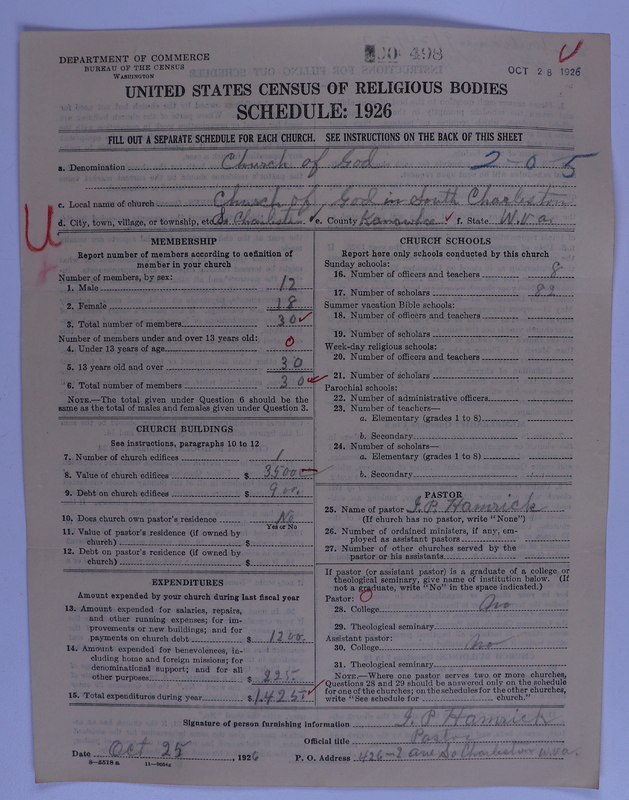 DEPARTMENT OF COMMERCE
BUREAU OF THE CENSUS
WASHINGTON
498
OCT 28 1926
UNITED STATES CENSUS OF RELIGIOUS BODIES
SCHEDULE: 1926
FILL OUT A SEPARATE SCHEDULE FOR EACH CHURCH. SEE INSTRUCTIONS ON THE BACK OF THIS SHEET
a. Denomination Church of God 2-0-5
c. Local name of church Church of God in South Charleston
d. City, town, village, or township, etc. So Charleston e. County Kanawha f. State W.Va.
MEMBERSHIP
Report number of members according to definition of
member in your church
Number of members, by sex:
1. Male 12
2. Female 18
3. Total number of members 30
Number of members under and over 13 years old:
4. Under 13 years of age 0
5. 13 years old and over 30
6. Total number of members 30
NOTE.—The total given under Question 6 should be the
same as the total of males and females given under Question 3.
CHURCH BUILDINGS
See instructions, paragraphs 10 to 12
7. Number of church edifices 1
8. Value of church edifices $ 3500
9. Debt on church edifices $ 900
10. Does church own pastor's residence No
Yes or No
11. Value of pastor's residence (if owned by
church) $
12. Debt on pastor's residence (if owned by
church) $
EXPENDITURES
Amount expended by your church during last fiscal year
13. Amount expended for salaries, repairs,
and other running expenses; for im-
provements or new buildings; and for
payments on church debt $ 1200
14. Amount expended for benevolences, in-
cluding home and foreign missions; for
denominational support; and for all
other purposes $ 225
15. Total expenditures during year $ 1.425
CHURCH SCHOOLS
Report here only schools conducted by this church
Sunday schools:
16. Number of officers and teachers 8
17. Number of scholars 82
Summer vacation Bible schools:
18. Number of officers and teachers
19. Number of scholars
Week-day religious schools:
20. Number of officers and teachers
21. Number of scholars
Parochial schools:
22. Number of administrative officers
23. Number of teachers—
a. Elementary (grades 1 to 8)
b. Secondary
24. Number of scholars—
a. Elementary (grades 1 to 8)
b. Secondary
PASTOR
25. Name of pastor I. P. Hamrick
(If church has no pastor, write "None")
26. Number of ordained ministers, if any, em-
ployed as assistant pastors
27. Number of other churches served by the
pastor or his assistants
If pastor (or assistant pastor) is a graduate of a college or
theological seminary, give name of institution below. (If
not a graduate, write "No" in the space indicated.)
Pastor: 0
28. College No
29. Theological seminary
Assistant pastor:
30. College No
31. Theological seminary
NOTE.—Where one pastor serves two or more churches,
Questions 28 and 29 should be answered only on the schedule
for one of the churches; on the schedules for the other churches,
write "See schedule for church."
Signature of person furnishing information I. P. Hamrick
Official title Pastor
Date Oct 25, 1926 P. O. Address 426-2 ave So Charleston W.Va.
8-5518a